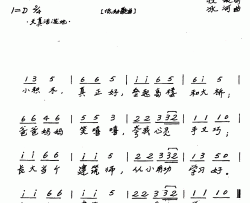 1=D 2/4
冰河曲
1 3 5 | 6 6 5 | i i 6 5 | 6 i 5 |
小积木, 真正好, 垒起高楼 和大桥;
6 6 4 6 | 5 5 3 | 2 2 3 3 2 | 1 1 1 0 |
爸爸妈妈 笑嘻嘻, 夸我心灵 手又巧;
i i 6 6 | i i 5 | 2 2 3 3 2 | 1 3 5 0 |
长大当个 建筑师, 从小用功 学习好,
i i 6 6 | i i 5 | 2 2 3 3 2 | 1 1 1 0 |